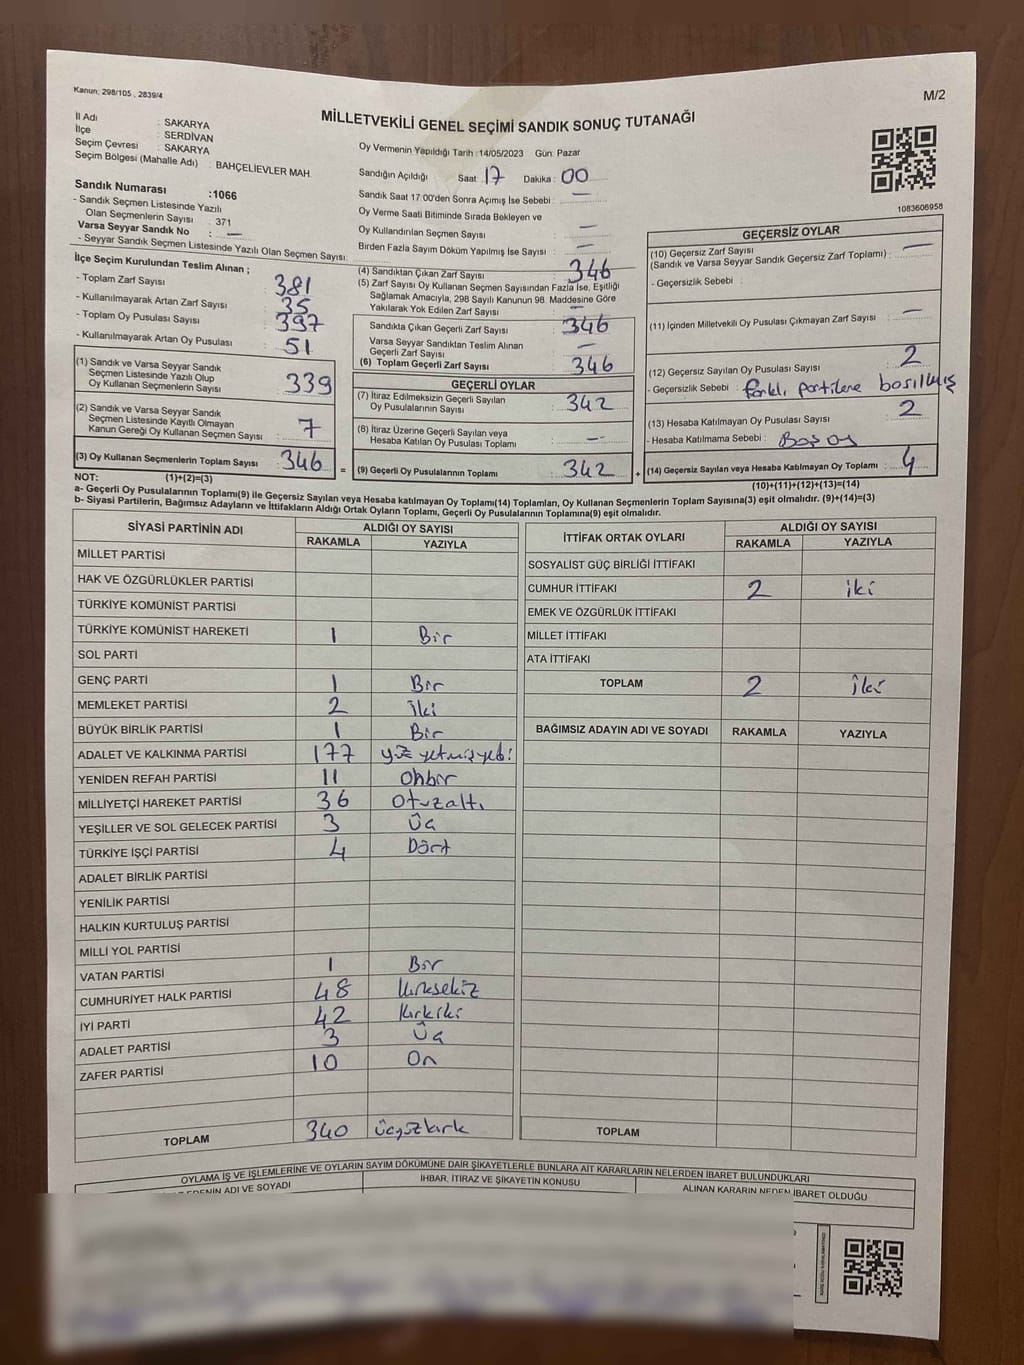 Kanun; 298/105 , 2839/4
M/2
MİLLETVEKİLİ GENEL SEÇİMİ SANDIK SONUÇ TUTANAĞI
İl Adı : SAKARYA
İlçe : SERDİVAN
Seçim Çevresi : SAKARYA
Seçim Bölgesi (Mahalle Adı) : BAHÇELİEVLER MAH.
Sandık Numarası :1066
- Sandık Seçmen Listesinde Yazılı
Olan Seçmenlerin Sayısı : 371
Varsa Seyyar Sandık No : —
- Seyyar Sandık Seçmen Listesinde Yazılı Olan Seçmen Sayısı:
İlçe Seçim Kurulundan Teslim Alınan ;
- Toplam Zarf Sayısı : 381
- Kullanılmayarak Artan Zarf Sayısı : 35
- Toplam Oy Pusulası Sayısı : 397
- Kullanılmayarak Artan Oy Pusulası : 51
(1) Sandık ve Varsa Seyyar Sandık
Seçmen Listesinde Yazılı Olup
Oy Kullanan Seçmenlerin Sayısı : 339
(2) Sandık ve Varsa Seyyar Sandık
Seçmen Listesinde Kayıtlı Olmayan
Kanun Gereği Oy Kullanan Seçmen Sayısı : 7
(3) Oy Kullanan Seçmenlerin Toplam Sayısı : 346
Oy Vermenin Yapıldığı Tarih :14/05/2023 Gün: Pazar
Sandığın Açıldığı Saat : 17 Dakika : 00
Sandık Saat 17:00'den Sonra Açımış İse Sebebi : —
Oy Verme Saati Bitiminde Sırada Bekleyen ve
Oy Kullandırılan Seçmen Sayısı : —
Birden Fazla Sayım Döküm Yapılmış İse Sayısı : —
(4) Sandıktan Çıkan Zarf Sayısı : 346
(5) Zarf Sayısı Oy Kullanan Seçmen Sayısından Fazla İse, Eşitliği
Sağlamak Amacıyla, 298 Sayılı Kanunun 98. Maddesine Göre
Yakılarak Yok Edilen Zarf Sayısı : —
Sandıkta Çıkan Geçerli Zarf Sayısı : 346
Varsa Seyyar Sandıktan Teslim Alınan
Geçerli Zarf Sayısı : —
(6) Toplam Geçerli Zarf Sayısı : 346
GEÇERLİ OYLAR
(7) İtiraz Edilmeksizin Geçerli Sayılan
Oy Pusulalarının Sayısı : 342
(8) İtiraz Üzerine Geçerli Sayılan veya
Hesaba Katılan Oy Pusulası Toplamı : —
= (9) Geçerli Oy Pusulalarının Toplamı : 342 +
1083606958
GEÇERSİZ OYLAR
(10) Geçersiz Zarf Sayısı
(Sandık ve Varsa Seyyar Sandık Geçersiz Zarf Toplamı) : —
- Geçersizlik Sebebi :
(11) İçinden Milletvekili Oy Pusulası Çıkmayan Zarf Sayısı : —
(12) Geçersiz Sayılan Oy Pusulası Sayısı : 2
- Geçersizlik Sebebi : farklı partilere basılmış
(13) Hesaba Katılmayan Oy Pusulası Sayısı : 2
- Hesaba Katılmama Sebebi : Boş oy
(14) Geçersiz Sayılan veya Hesaba Katılmayan Oy Toplamı : 4
NOT: (1)+(2)=(3)
(10)+(11)+(12)+(13)=(14)
a- Geçerli Oy Pusulalarının Toplamı(9) ile Geçersiz Sayılan veya Hesaba katılmayan Oy Toplamı(14) Toplamları, Oy Kullanan Seçmenlerin Toplam Sayısına(3) eşit olmalıdır. (9)+(14)=(3)
b- Siyasi Partilerin, Bağımsız Adayların ve İttifakların Aldığı Ortak Oyların Toplamı, Geçerli Oy Pusulalarının Toplamına(9) eşit olmalıdır.
SİYASİ PARTİNİN ADI ALDIĞI OY SAYISI
RAKAMLA YAZIYLA
MİLLET PARTİSİ
HAK VE ÖZGÜRLÜKLER PARTİSİ
TÜRKİYE KOMÜNİST PARTİSİ
TÜRKİYE KOMÜNİST HAREKETİ 1 Bir
SOL PARTİ
GENÇ PARTİ 1 Bir
MEMLEKET PARTİSİ 2 İki
BÜYÜK BİRLİK PARTİSİ 1 Bir
ADALET VE KALKINMA PARTİSİ 177 yüz yetmişyedi
YENİDEN REFAH PARTİSİ 11 Onbir
MİLLİYETÇİ HAREKET PARTİSİ 36 Otuzaltı
YEŞİLLER VE SOL GELECEK PARTİSİ 3 Üç
TÜRKİYE İŞÇİ PARTİSİ 4 Dört
ADALET BİRLİK PARTİSİ
YENİLİK PARTİSİ
HALKIN KURTULUŞ PARTİSİ
MİLLİ YOL PARTİSİ
VATAN PARTİSİ 1 Bir
CUMHURİYET HALK PARTİSİ 48 Kırksekiz
İYİ PARTİ 42 Kırkiki
ADALET PARTİSİ 3 Üç
ZAFER PARTİSİ 10 On
TOPLAM 340 üçyüzkırk
İTTİFAK ORTAK OYLARI ALDIĞI OY SAYISI
RAKAMLA YAZIYLA
SOSYALİST GÜÇ BİRLİĞİ İTTİFAKI
CUMHUR İTTİFAKI 2 iki
EMEK VE ÖZGÜRLÜK İTTİFAKI
MİLLET İTTİFAKI
ATA İTTİFAKI
TOPLAM 2 İki
BAĞIMSIZ ADAYIN ADI VE SOYADI RAKAMLA YAZIYLA
TOPLAM
OYLAMA İŞ VE İŞLEMLERİNE VE OYLARIN SAYIM DÖKÜMÜNE DAİR ŞİKAYETLERLE BUNLARA AİT KARARLARIN NELERDEN İBARET BULUNDUKLARI
ADI VE SOYADI İHBAR, İTİRAZ VE ŞİKAYETİN KONUSU ALINAN KARARIN NEDEN İBARET OLDUĞU